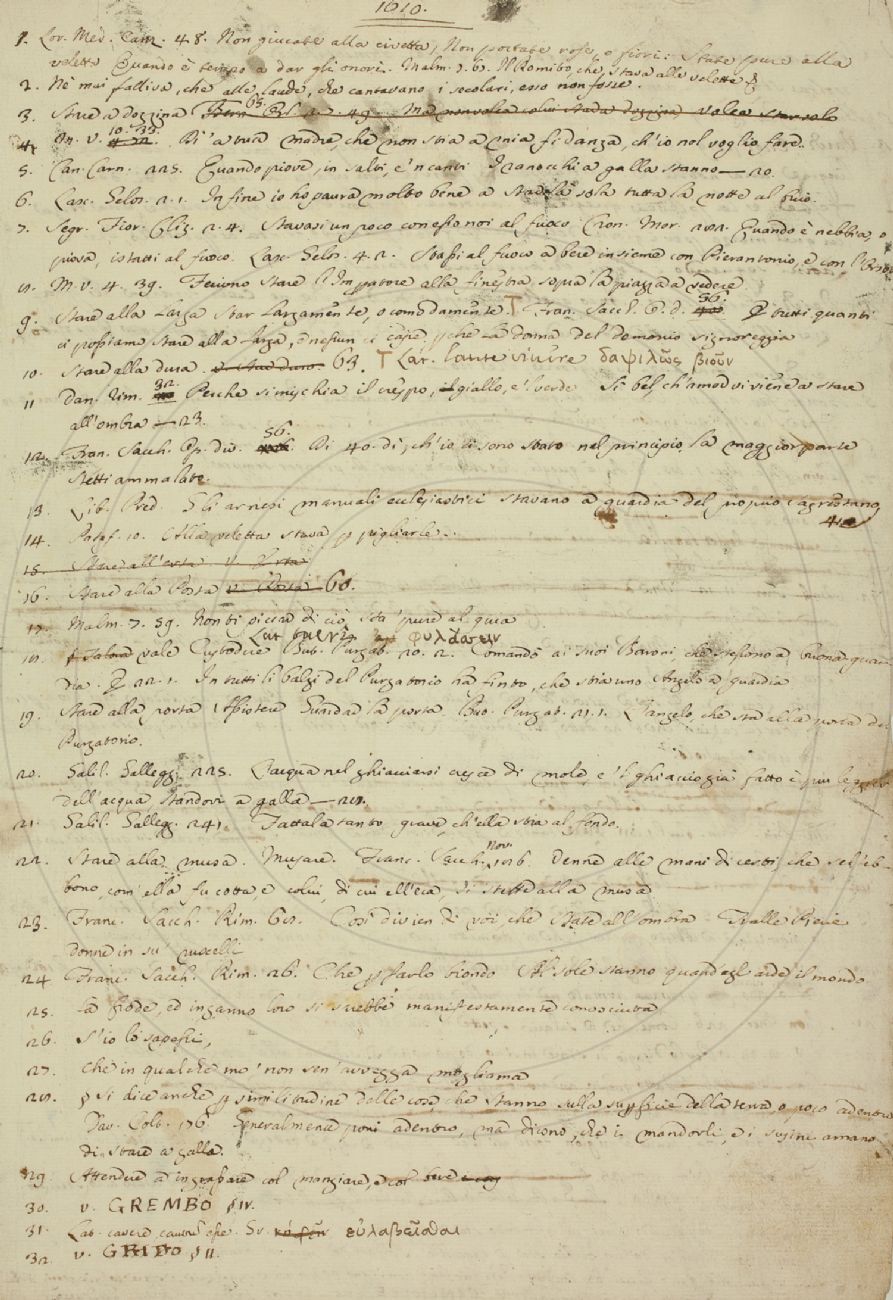 1610.
1. Lor. Med. Canz. 48. Non giucate alla civetta, Non portate rose, o fiori: State pure alla
veletta Quando è tempo a dar gli onori. Malm. 7. 61. Il Romito, che stava alle velette
2. Nè mai falliva, che alle laude, che cantavano i secolari, esso non fosse.
3. Stare a dozzina 63. volea star solo
4. v. 10. 33. Di' a tua madre, che non stia a mia fidanza, ch'io nol voglio fare.
5. Can. Carn. 225. Quando piove, in salti, e 'n canti I ranocchi a galla stanno — 20.
6. Lasc. Gelos. 2. 1. In fine io ho paura molto bene a star sola tutta la notte al buio.
7. Segr. Fior. Cliz. 2. 4. Stavasi un poco con esso noi al fuoco Cron. Mor. 282. Quando è nebbia, o
piova, istatti al fuoco. Lasc. Gelos. 4. 2. Stassi al fuoco a bere insieme con Pierantonio, e con l'
8. M. V. 4. 39. Feciono stare l'Imperatore alla finestra sopra la piazza a vedere
9. Stare alla larga Star largamente, o comodamente. T Fran. Sacch. O. d. 56. tutti quanti
ci possiamo stare alla larga, e nessun ci cape, p che la donna del demonio signoreggia
10. Stare alla dura. v. Star duro. 63. T Lat. laute vivere δαψιλῶς βιοῦν
11 Dan. Rim. 32. Perche si mischia il crespo, il giallo, e 'l verde Sì bel, ch'amor vi viene a stare
all'ombra — 23.
12. Fran. Sacch. Op. div. 56. Di 40. dì, ch'io ci sono stato nel principio, la maggior parte
stetti ammalato.
13. Lib. Pred. Gli arnesi manuali ecclesiastici stavano a guardia del proprio sagrestano
41
14. Pataf. 10. Alla veletta stava p pigliarle.
15. Stare all'erta v. Erta
16. Stare alla Posta v. Posta 60.
17. Malm. 7. 59. Non ti piccar di ciò, sta' pure al quia
Lat. tueri φυλάσσειν
18. vale Custodire But. Purgat. 20. 2. Comandò ai suoi Baroni che stessono a buona guar-
dia. E 22. 1. In tutti li balzi del Purgatorio ha finto, che stia uno Angelo a guardia
19. Stare alla porta Assistere Guardar la porta. But. Purgat. 21. 1. L'angelo, che sta alla porta del
Purgatorio.
20. Galil. Gallegg. 225. L'acqua nel ghiacciarsi cresca di mole, e 'l ghiaccio già fatto è più leggiero
dell'acqua standovi a galla — 28.
21. Galil. Gallegg. 241. Fattala tanto grave, ch'ella stia al fondo.
22. Stare alla musa. Musare. Franc. Sacch. Nov. 186. Venne alle mani di certi, che se l'eb-
bono, com'ella fu cotta, e colui, di cui ell'era, si stette alla musa
23. Franc. Sacch. Rim. 68. Così divien di voi, che state all'ombra Tralle Pievi
donne in su' ruscelli
24 Franc. Sacch. Rim. 26. Che p farlo biondo Al sole stanno quand'egli arde il mondo
25. La frode, ed inganno loro si sarebbe manifestamente conosciuta
26. S'io lo sapessi,
27. che in qualche mo' non sen'avvegga mogliama
28. § si dice anche p similitudine delle cose, che stanno sulla superficie della terra o poco adentro
Dav. Colt. 176. Generalmente poni adentro, ma dicono, che i mandorli, e i susini amano
di stare a galla.
29 Attendere a ingrassare col mangiare, e col bere
30. v. GREMBO § IV.
31. Lat. cavere, cautum esse. Gr. εὐλαβεῖσθαι
32. v. GRIDO § II.